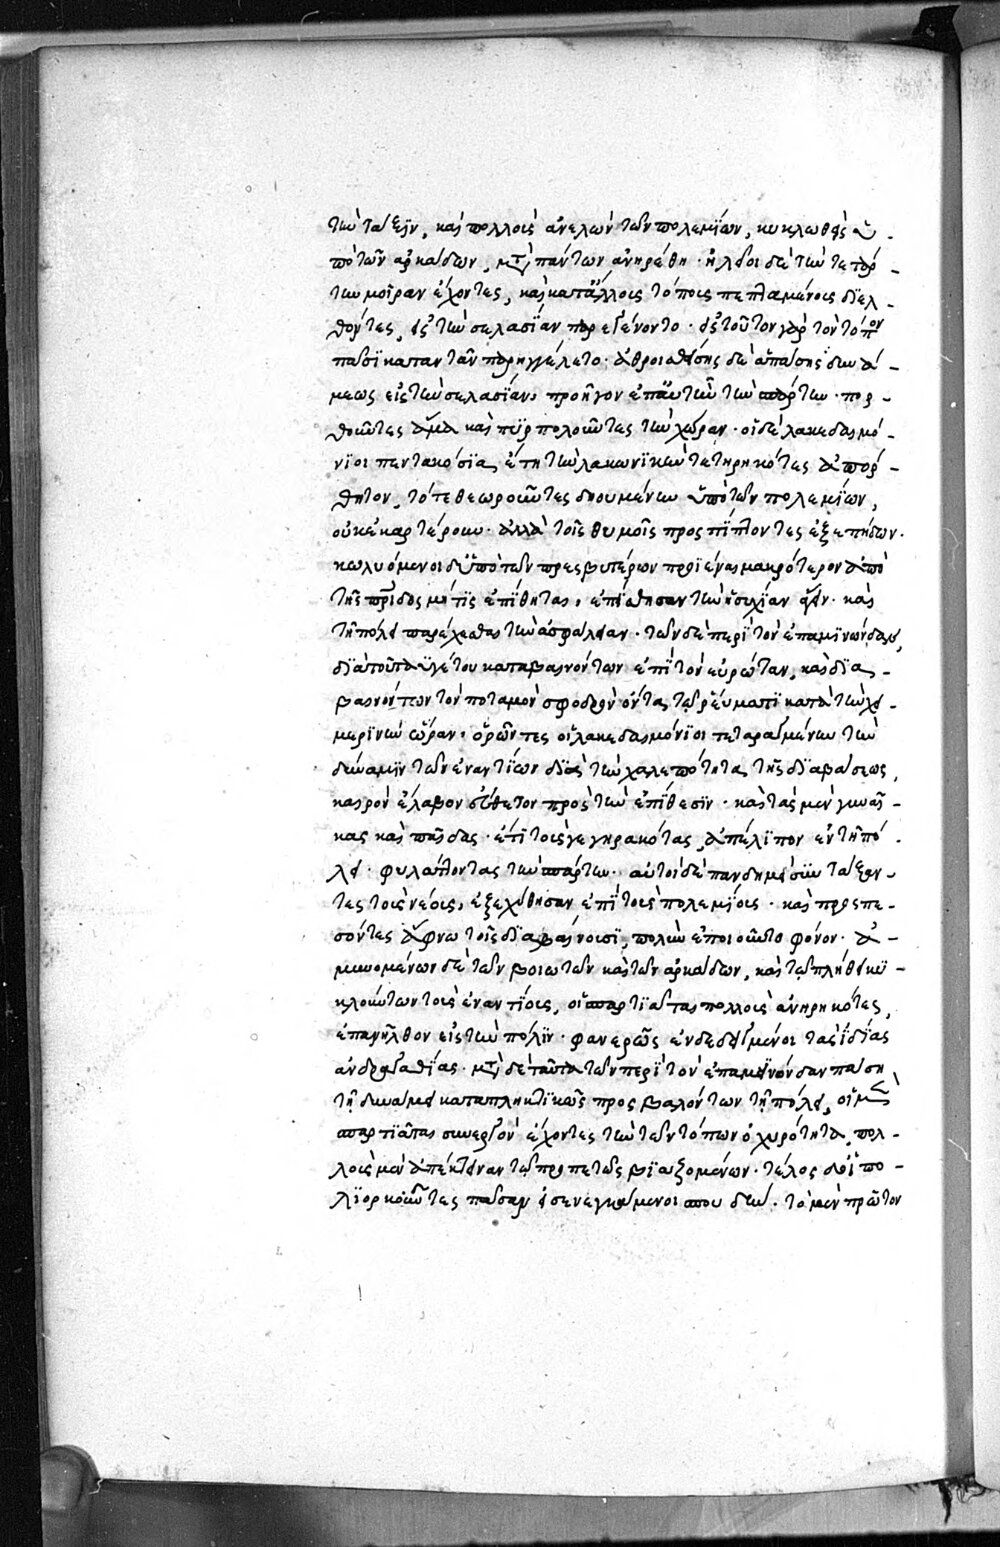 τὴν τάξιν, καὶ πολλοὺς ἀνελὼν τῶν πολεμίων, κυκλωθεὶς ὑ-
πὸ τῶν ἀρκάδων, μετὰ πάντων ἀνηρέθη. ἠλεῖοι δὲ τὴν τετάρ-
την μοῖραν ἔχοντες, καὶ κατ' ἄλλους τόπους πεπλαμένοις διελ-
θόντες, εἰς τὴν σελασίαν παρεγένοντο. εἰς τοῦτον γὰρ τὸν τόπον
πᾶσι καταντᾶν παρηγγέλετο. ἀθροισθείσης δὲ ἁπάσης δυνά-
μεως εἰς τὴν σελασίαν, προῆγον ἐπ' αὐτὴν τὴν σπάρτην. πορ-
θοῦντες ἅμα καὶ πυρπολοῦντες τὴν χώραν. οἱ δὲ λακεδαιμό-
νιοι πεντακόσια ἔτη τὴν λακωνικὴν τετηρηκότες ἀπόρ-
θητον, τότε θεωροῦντες δηουμένην ὑπὸ τῶν πολεμίων,
οὐκ ἐκαρτέρουν. ἀλλὰ τοῖς θυμοῖς προσπίπτοντες ἐξεπήδων.
κωλυόμενοι δ' ὑπὸ τῶν πρεσβυτέρων προϊέναι μακρότερον ἀπὸ
τῆς πατρίδος μή τις ἐπίθηται, ἐπείσθησαν τὴν ἡσυχίαν ἔχειν. καὶ
τῇ πόλει παρέχεσθαι τὴν ἀσφάλειαν. τῶν δὲ περὶ τὸν ἐπαμινώνδαν,
διὰ τοῦ ταϋγέτου καταβαινόντων ἐπὶ τὸν εὐρώταν, καὶ δια-
βαινόντων τὸν ποταμὸν σφοδρὸν ὄντα τῷ ῥεύματι κατὰ τὴν χει-
μερινὴν ὥραν. ὁρῶντες οἱ λακεδαιμόνιοι τεταραγμένην τὴν
δύναμιν τῶν ἐναντίων διὰ τὴν χαλεπότητα τῆς διαβάσεως,
καιρὸν ἔλαβον εὔθετον πρὸς τὴν ἐπίθεσιν. καὶ τὰς μὲν γυναῖ-
κας καὶ παῖδας. ἔτι τοὺς γεγηρακότας ἀπέλιπον ἐν τῇ πό-
λει. φυλάττοντας τὴν σπάρτην. αὐτοὶ δὲ πανδημεὶ συντάξαν-
τες τοὺς νέους, ἐξεχύθησαν ἐπὶ τοὺς πολεμίους. καὶ προσπε-
σόντες ἄφνω τοῖς διαβαίνουσι, πολὺν ἐποιοῦντο φόνον. ἀ-
μυνομένων δὲ τῶν βοιωτῶν καὶ τῶν ἀρκάδων, καὶ τῷ πλήθει κυ-
κλούντων τοὺς ἐναντίους, οἱ σπαρτιᾶται πολλοὺς ἀνῃρηκότες,
ἐπανῆλθον εἰς τὴν πόλιν. φανερῶς ἐνδεδειγμένοι τὰς ἰδίας
ἀνδραγαθίας. μετὰ δὲ ταῦτα τῶν περὶ τὸν ἐπαμεινόνδαν πάσῃ
τῇ δυνάμει καταπληκτικῶς προσβαλόντων τῇ πόλει, οἱ μὲν
σπαρτιᾶται συνεργὸν ἔχοντες τὴν τῶν τόπων ὀχυρότητα, πολ-
λοὺς μὲν ἀπέκτειναν τῶν προπετῶς βιαζομένων. τέλος δὲ οἱ πο-
λιορκοῦντες πᾶσαν εἰσενεγκάμενοι σπουδὴν. τὸ μὲν πρῶτον